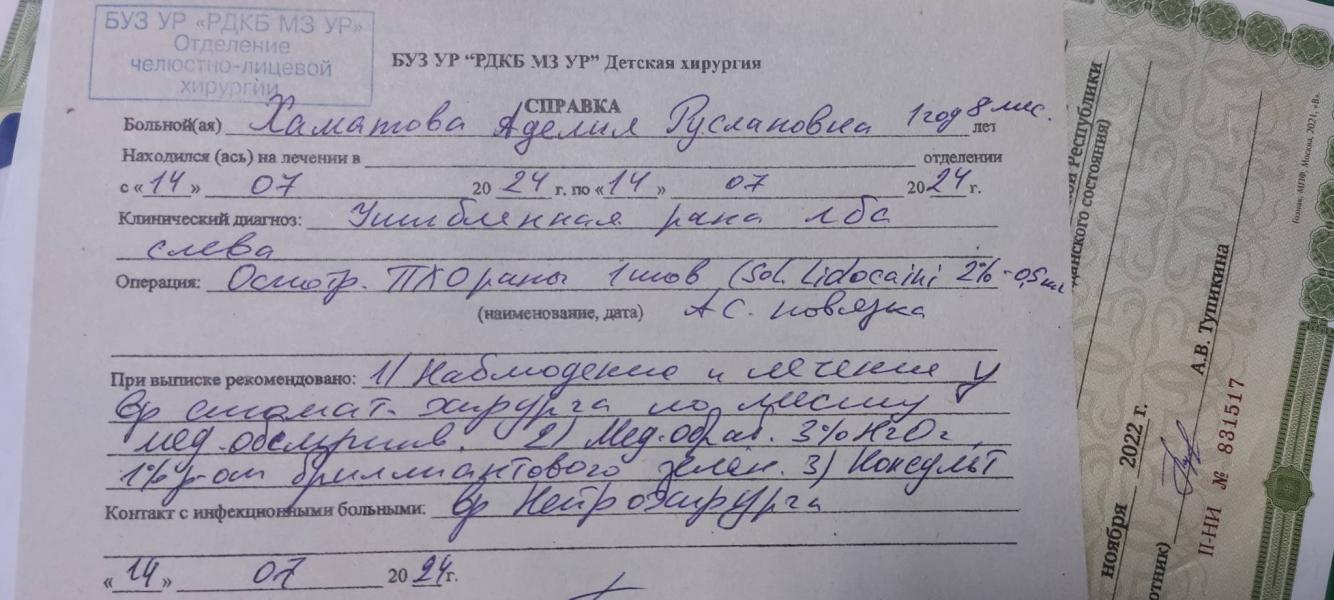 БУЗ УР «РДКБ МЗ УР»
Отделение
челюстно-лицевой
хирургии
БУЗ УР “РДКБ МЗ УР” Детская хирургия
СПРАВКА
Больной(ая) Хаматова Аделия Руслановна 1 год 8 мес. лет
Находился (ась) на лечении в отделении
с «14» 07 2024 г. по «14» 07 2024 г.
Клинический диагноз: Ушибленная рана лба
слева
Операция: Осмотр. ПХО раны 1 шов (Sol. Lidocaini 2% - 0,5 мл
(наименование, дата) АС. повязка
При выписке рекомендовано: 1) Наблюдение и лечение у
вр стомат-хирурга по месту
мед. обслужив. 2) Мед. обраб. 3% H2O2,
1% р-ом бриллиантового зелен. 3) Консульт
Контакт с инфекционными больными: вр Нейрохирурга
«14» 07 2024г.
ой Республики
данского состояния)
ноября 2022 г.
отник) А.В. Тупикина
II-НИ № 831517
Гознак, МПФ, Москва, 2021, «В».